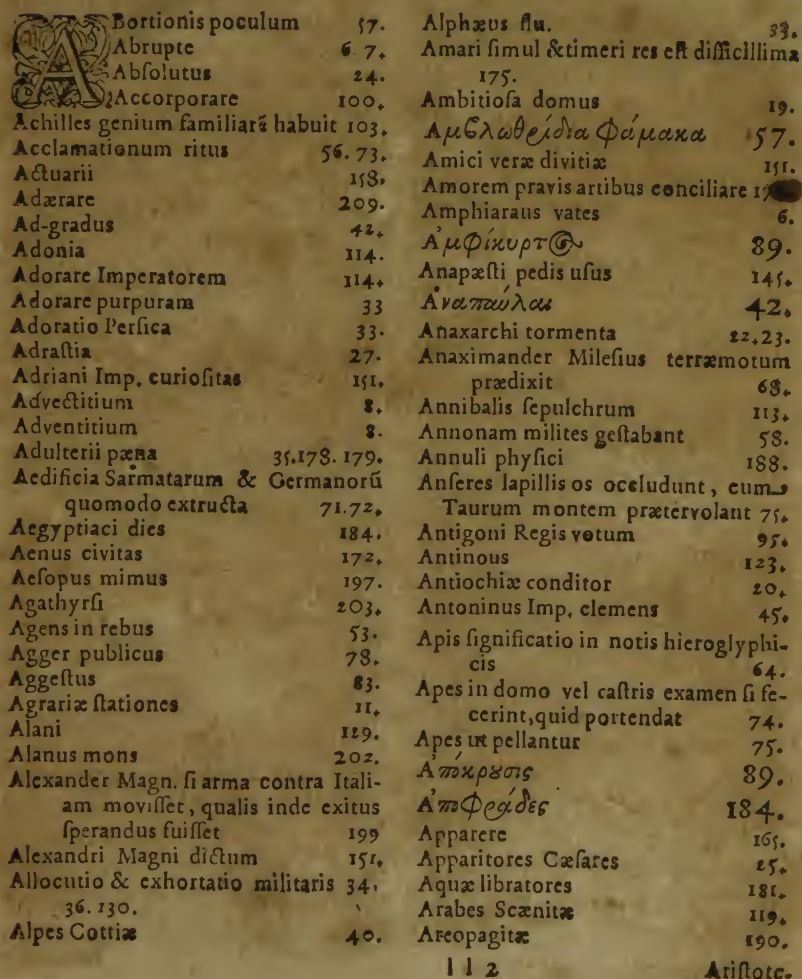 ABortionis poculum 57.
Abrupte 6 7.
Abſolutus 24.
Accorporare 100.
Achilles genium familiarē habuit 103.
Acclamationum ritus 56. 73.
Actuarii 158.
Adærare 209.
Ad-gradus 42.
Adonia 114.
Adorare Imperatorem 114.
Adorare purpuram 33
Adoratio Perſica 33.
Adraſtia 27.
Adriani Imp. curioſitas 151.
Advectitium 8.
Adventitium 8.
Adulterii pæna 35.178. 179.
Aedificia Sarmatarum & Germanorū
quomodo extructa 71.72.
Aegyptiaci dies 184.
Aenus civitas 172.
Aeſopus mimus 197.
Agathyrſi 203.
Agens in rebus 53.
Agger publicus 78.
Aggeſtus 83.
Agrariæ ſtationes 11.
Alani 129.
Alanus mons 202.
Alexander Magn. ſi arma contra Itali-
am moviſſet, qualis inde exitus
ſperandus fuiſſet 199
Alexandri Magni dictum 151.
Allocutio & exhortatio militaris 34.
36. 130.
Alpes Cottiæ 40.
Alphæus flu. 33.
Amari ſimul &timeri res eſt difficillima
175.
Ambitioſa domus 19.
Αμβλωθρίδια φάμακα 57.
Amici veræ divitiæ 151.
Amorem pravis artibus conciliare
Amphiaraus vates 6.
Αμφίκυρτ 89.
Anapæſti pedis uſus 145.
Αναπαύλαι 42.
Anaxarchi tormenta 22.23.
Anaximander Mileſius terræmotum
prædixit 68.
Annibalis ſepulchrum 113.
Annonam milites geſtabant 58.
Annuli phyſici 188.
Anſeres lapillis os occludunt, cum
Taurum montem prætervolant 75.
Antigoni Regis votum 95.
Antinous 123.
Antiochiæ conditor 20.
Antoninus Imp. clemens 45.
Apis ſignificatio in notis hieroglyphi-
cis 64.
Apes in domo vel caſtris examen ſi fe-
cerint,quid portendat 74.
Apes ut pellantur 75.
Απόκρυσις 89.
Αποφράδες 184.
Apparere 165.
Apparitores Cæſares 25.
Aquæ libratores 181.
Arabes Scænitæ 119.
Areopagitæ 190.
l l 2 Ariſtote.